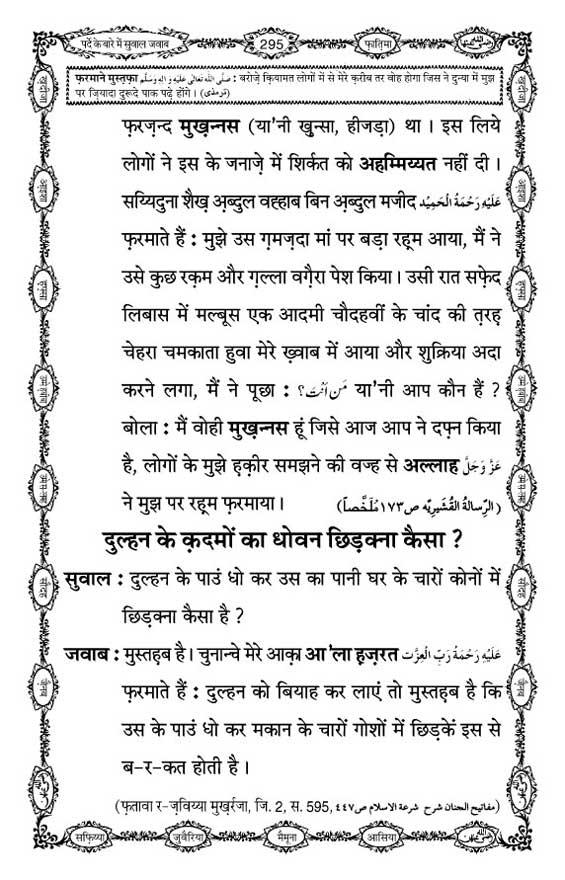 पर्दे के बारे में सुवाल जवाब 295 फ़ातिमा
फ़रमाने मुस्तफ़ा صَلَّى اللهُ تَعَالٰى عَلَيْهِ وَاٰلِهٖ وَسَلَّم : बरोज़े क़ियामत लोगों में से मेरे क़रीब तर वोह होगा जिस ने दुन्या में मुझ
पर ज़ियादा दुरूदे पाक पढ़े होंगे। (ترمذی)
फ़रज़न्द मुख़न्नस (या'नी खुन्सा, हीजड़ा) था । इस लिये
लोगों ने इस के जनाज़े में शिर्कत को अहम्मिय्यत नहीं दी ।
सय्यिदुना शैख़ अ़ब्दुल वह्हाब बिन अ़ब्दुल मजीद عَلَيْهِ رَحْمَةُ الْحَمِيْد
फ़रमाते हैं : मुझे उस ग़मज़दा मां पर बड़ा रह़म आया, मैं ने
उसे कुछ रक़म और ग़ल्ला वग़ैरा पेश किया । उसी रात सफ़ेद
लिबास में मल्बूस एक आदमी चौदहवीं के चांद की त़रह़
चेहरा चमकाता हुवा मेरे ख़्वाब में आया और शुक्रिया अदा
करने लगा, मैं ने पूछा : مَنْ اَنْتَ؟ या'नी आप कौन हैं ?
बोला : मैं वोही मुख़न्नस हूं जिसे आज आप ने दफ़्न किया
है, लोगों के मुझे ह़क़ीर समझने की वज्ह से अल्लाह عَزَّ وَجَلَّ
ने मुझ पर रह़म फ़रमाया । (الرِّسالةُ القُشَيرِيّه ص١٧٣ مُلَخَّصاً)
दुल्हन के क़दमों का धोवन छिड़क्ना कैसा ?
सुवाल : दुल्हन के पाउं धो कर उस का पानी घर के चारों कोनों में
छिड़क्ना कैसा है ?
जवाब : मुस्तह़ब है । चुनान्चे मेरे आक़ा आ'ला ह़ज़रत عَلَيْهِ رَحْمَةُ رَبِّ الْعِزَّت
फ़रमाते हैं : दुल्हन को बियाह कर लाएं तो मुस्तह़ब है कि
उस के पाउं धो कर मकान के चारों गोशों में छिड़कें इस से
ब-र-कत होती है ।
(फ़तावा र-ज़विय्या मुख़र्रजा, जि. 2, स. 595, مفاتيح الجنان شرح شرعة الاسلام ص٤٤٧)
सफ़िय्या जुवैरिया मैमूना आसिया